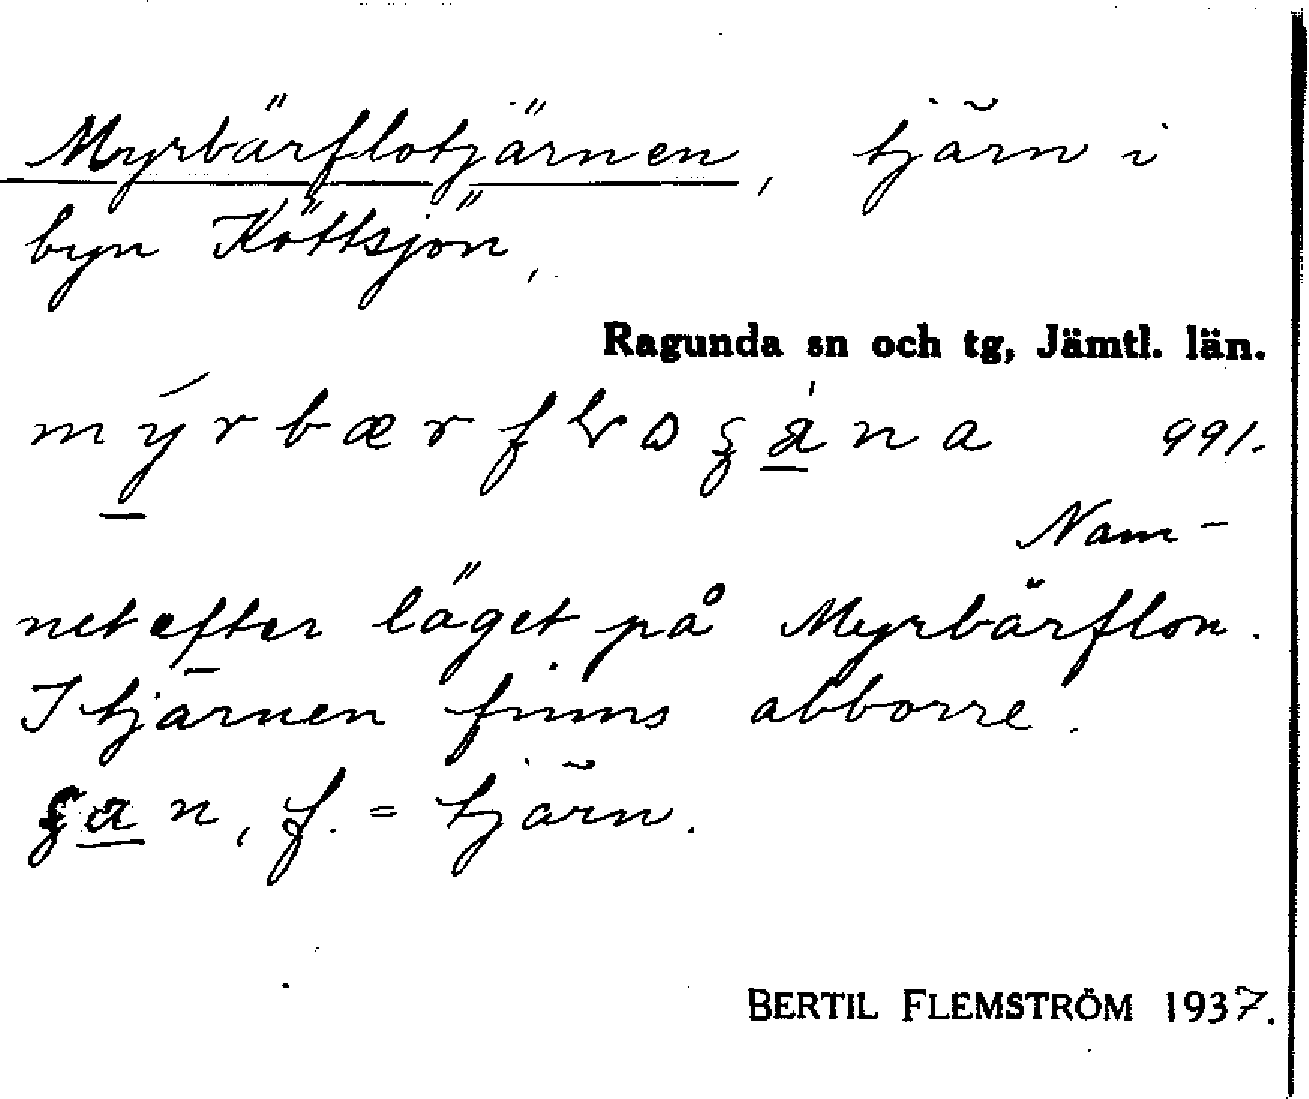 Myrbärflotjärnen, tjärn i
byn Köttsjön,
Ragunda sn och tg, Jämtl. län.
991.
Nam-
net efter läget på Myrbärflon.
I tjärnen finns abborre.
f. = tjärn.
BERTIL FLEMSTRÖM 1937.